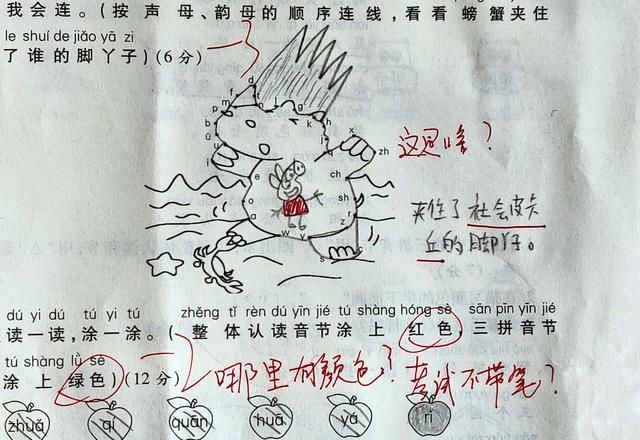 我会连。(按声母、韵母的顺序连线,看看螃蟹夹住
le shuí de jiǎo yā zi
了谁的脚丫子)(6分)
-3
d
f t
p m e l g
b k h
ü j
u x
i q zh
e ch
o sh
a r
z
w y
s c
这是啥?
夹住了社会皮卡
丘的脚丫子。
dú yi dú tú yi tú zhěng tǐ rèn dú yīn jié tú shàng hóng sè, sān pīn yīn jié
读一读,涂一涂。(整体认读音节涂上红色,三拼音节
tú shàng lǜ sè
涂上绿色)(12分)
哪里有颜色?考试不带笔?
zhuā qí quān huā yá rì